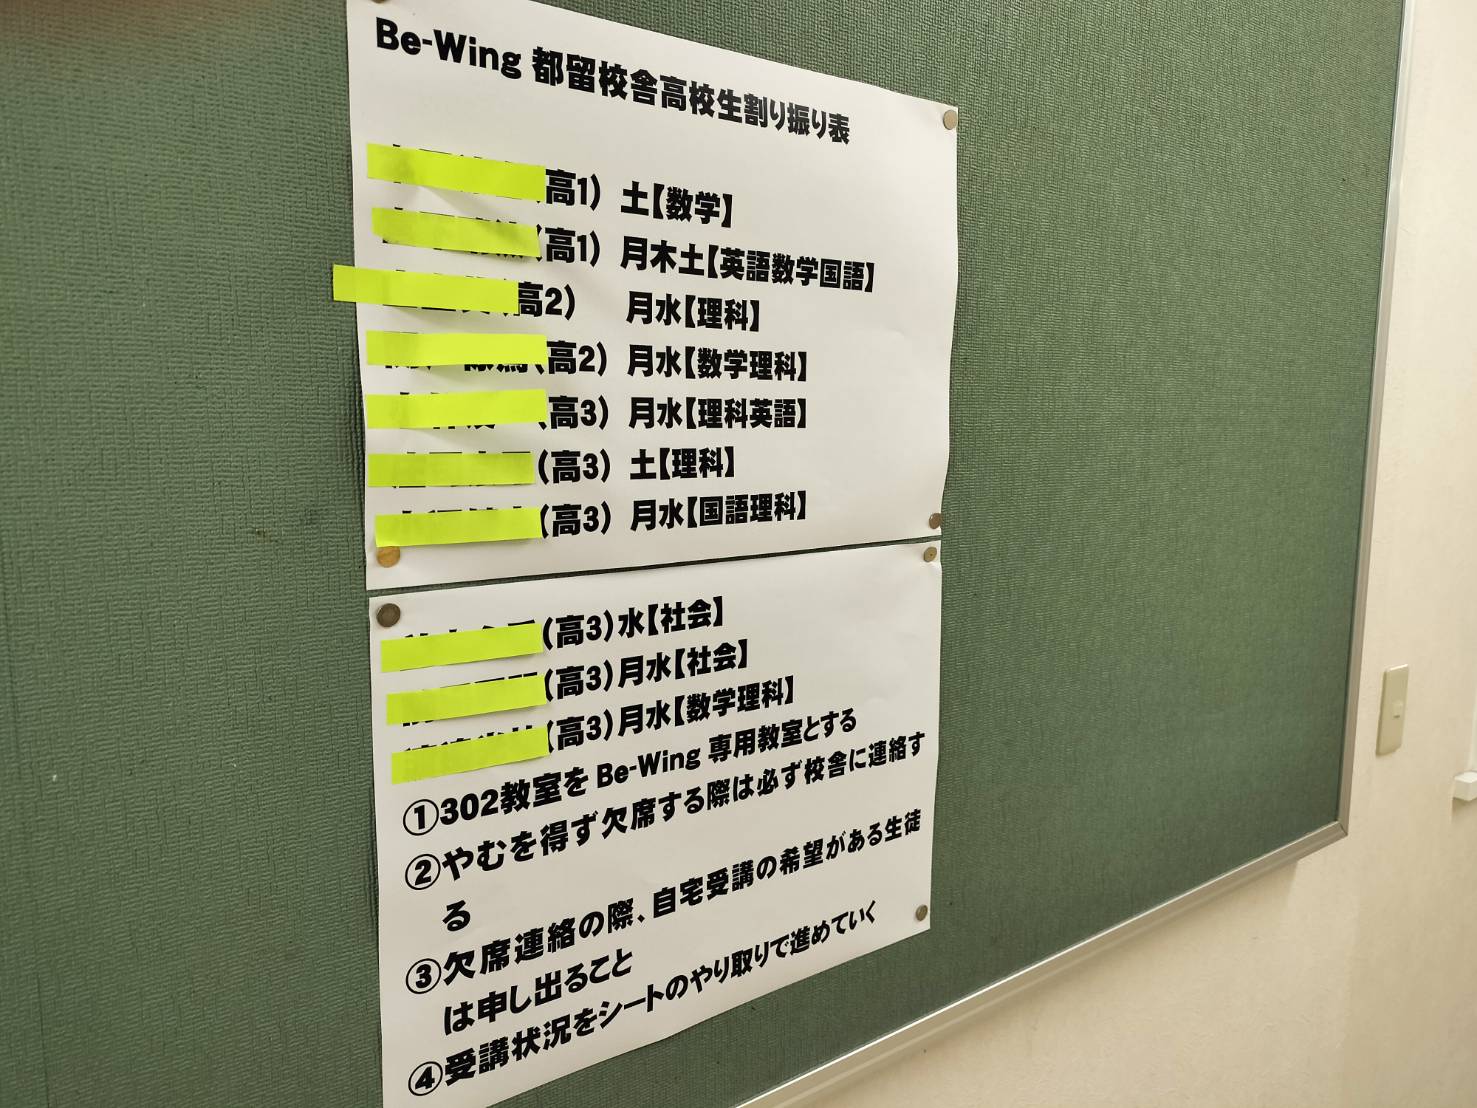 Be-Wing 都留校舎高校生割り振り表
(高1) 土【数学】
(高1) 月木土【英語数学国語】
高2) 月水【理科】
(高2) 月水【数学理科】
(高3) 月水【理科英語】
(高3) 土【理科】
(高3) 月水【国語理科】
(高3)水【社会】
(高3)月水【社会】
(高3)月水【数学理科】
①302教室を Be-Wing 専用教室とする
②やむを得ず欠席する際は必ず校舎に連絡す
る
③欠席連絡の際、自宅受講の希望がある生徒
は申し出ること
④受講状況をシートのやり取りで進めていく